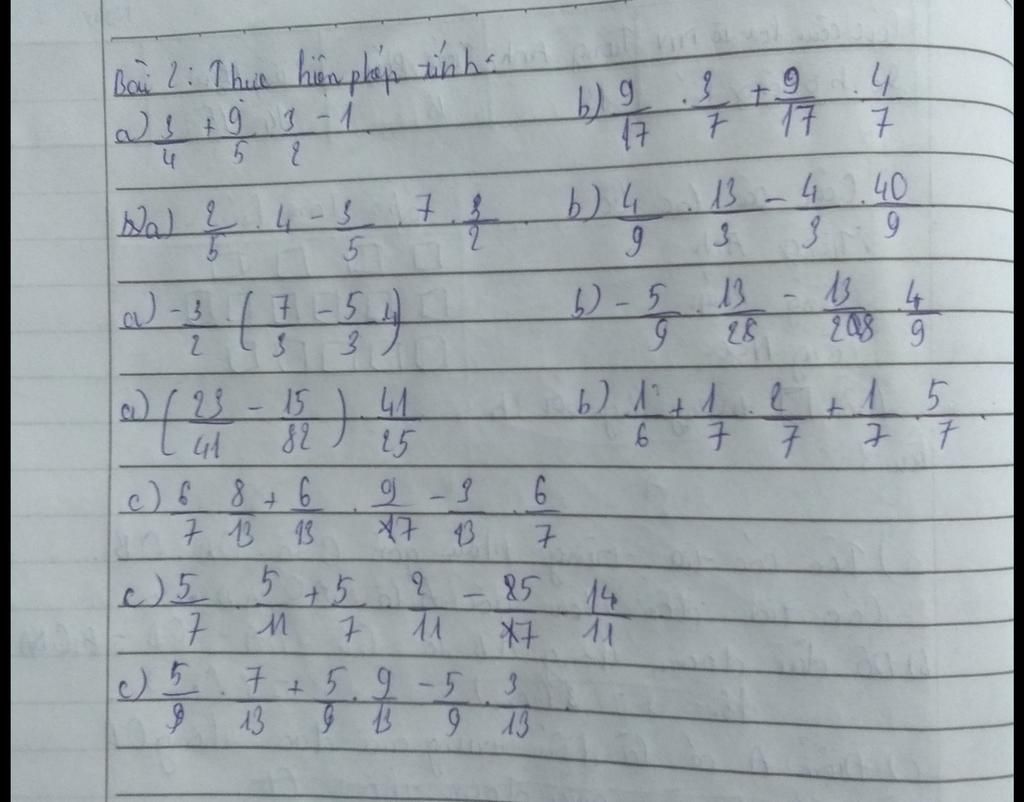 Bài 2: Thực hiện phép tính:
a) 3/4 + 9/5 . 3/2 - 1 b) 9/17 . 3/7 + 9/17 . 4/7
a) 2/5 . 4 - 3/5 . 7 . 3/2 b) 4/9 . 13/3 - 4/3 . 40/9
a) -3/2 . (7/3 - 5/3 . 4) b) -5/9 . 13/28 - 13/28 . 4/9
a) (23/41 - 15/82) . 41/25 b) 1/6 + 1/7 . 2/7 + 1/7 . 5/7
c) 6/7 8/13 + 6/13 . 9/7 - 3/13 . 6/7
c) 5/7 . 5/11 + 5/7 . 2/11 - 25/7 . 14/11
c) 5/9 . 7/13 + 5/9 . 9/13 - 5/9 . 3/13